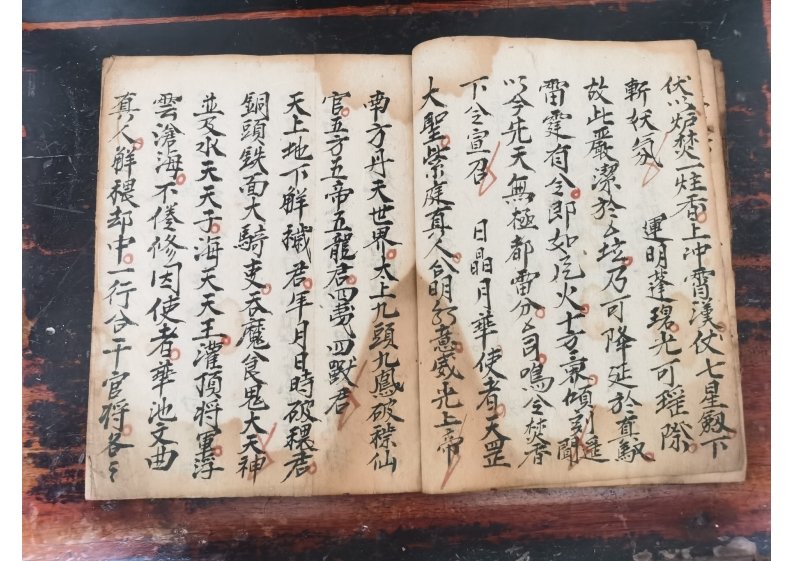 伏以炉焚一炷香上冲霄漢仗七星劔下
斬妖氛　運明蓬碧光可璀除
故此嚴潔於坛乃可降延於
雷霆有令即如片火十方東傾刻遥聞
以今先天無極都雷分司鳴令焚香
下令宣召　日晶月華使者天罡
大聖紫虚真人合明意威光上帝
南方丹天世界太上九頭九鳳破穢仙
官五方五帝五龍君四蛮四獸君
天上地下解穢君年月日時破穢君
銅頭鉄面大騎吏吞魔食鬼大天神
並及水天天子海天天王灌頂将軍浮
雲滄海不倦修因使者華池文曲
真人解穢却中一行合干官将各々